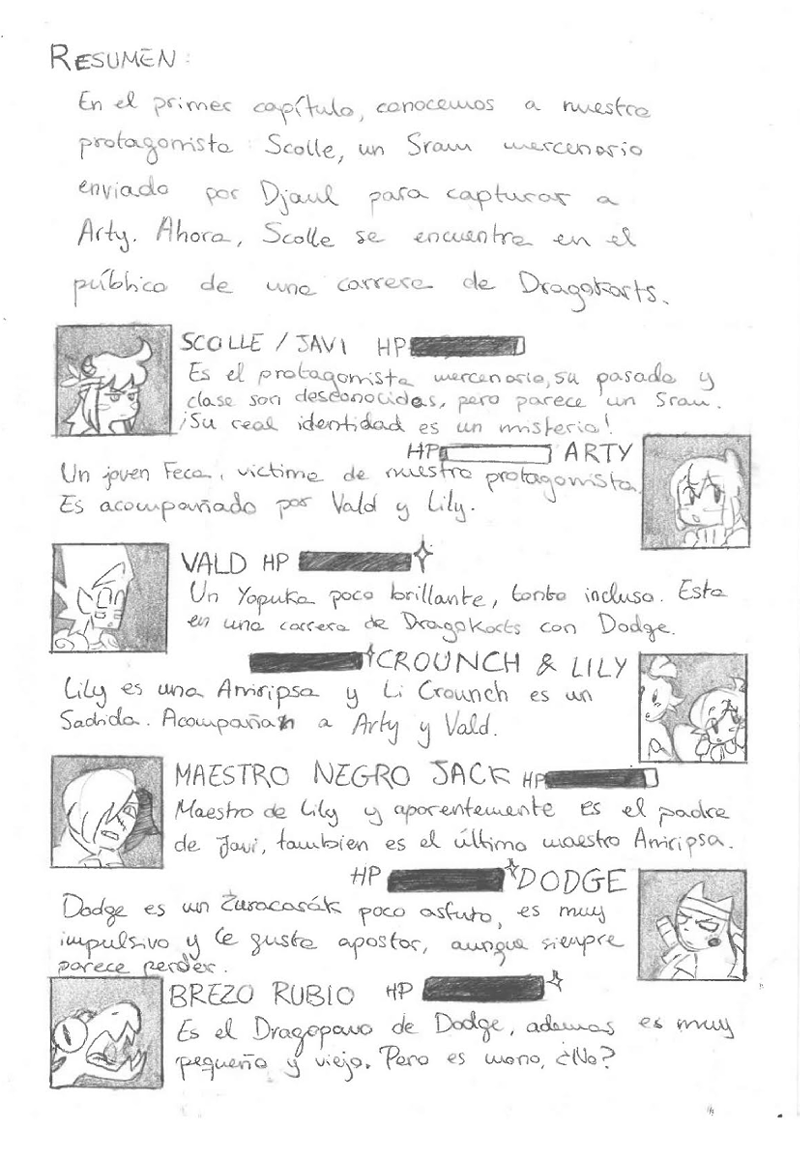 RESUMEN:
En el primer capítulo, conocemos a nuestro
protagonista Scolle, un Sram mercenario
enviado por Djaul para capturar a
Arty. Ahora, Scolle se encuentra en el
público de una carrera de Dragokarts.
SCOLLE / JAVI HP
Es el protagonista mercenario, su pasado y
clase son desconocidas, pero parece un Sram.
¡Su real identidad es un misterio!
HP ARTY
Un joven Feca, victima de nuestro protagonista.
Es acompañado por Vald y Lily.
VALD HP
Un Yopuka poco brillante, tonto incluso. Esta
en una carrera de Dragokarts con Dodge.
CROUNCH & LILY
Lily es una Aniripsa y Li Crounch es un
Sadida. Acompañan a Arty y Vald.
MAESTRO NEGRO JACK HP
Maestro de Lily y aparentemente es el padre
de Javi, tambien es el último maestro Aniripsa.
HP DODGE
Dodge es un Zuracarák poco astuto, es muy
impulsivo y le gusta apostar, aunque siempre
parece perder.
BREZO RUBIO HP
Es el Dragopavo de Dodge, ademas es muy
pequeño y viejo. Pero es mono, ¿No?